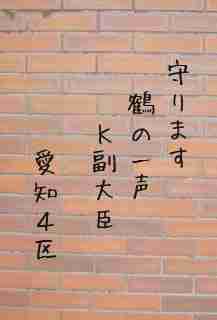 守ります
鶴の一声
K副大臣
愛知4区